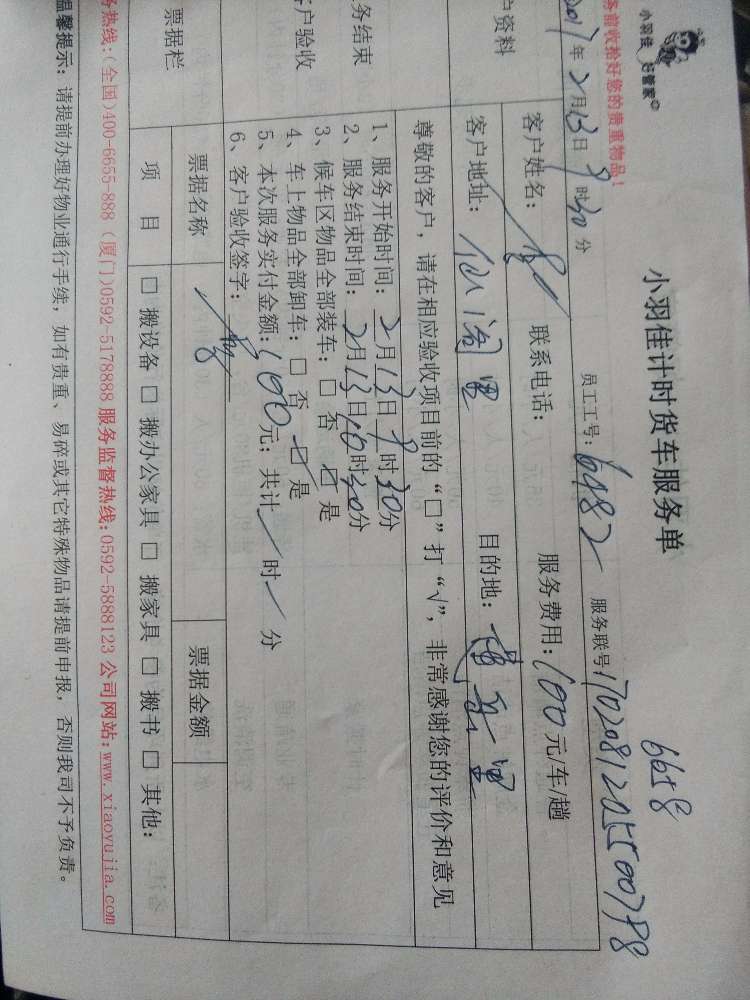 小羽佳 好管家
小羽佳计时货车服务单
6658
务前收拾好您的贵重物品!
员工工号: 6482 服务联号:
年2月13日9时30分
户资料
客户姓名: 联系电话: 服务费用: 100元/车/趟
客户地址: 仙阁里 目的地:
尊敬的客户,请在相应验收项目前的“□”打“√”,非常感谢您的评价和意见
务结束
户验收
1、服务开始时间: 2月13日9时30分
2、服务结束时间: 2月13日10时30分
3、候车区物品全部装车: □ 否 □ 是
4、车上物品全部卸车: □ 否 □ 是
5、本次服务实付金额: 100元; 共计 时 分
6、客户验收签字:
票据栏
票据名称 票据金额
项 目 □ 搬设备 □ 搬办公家具 □ 搬家具 □ 搬书 □ 其他:
务热线:(全国)400-6655-888 (厦门)0592-5178888 服务监督热线:0592-5888123 公司网站:www.xiaoyujia.com
温馨提示: 请提前办理好物业通行手续, 如有贵重、易碎或其它特殊物品请提前申报, 否则我司不予负责。